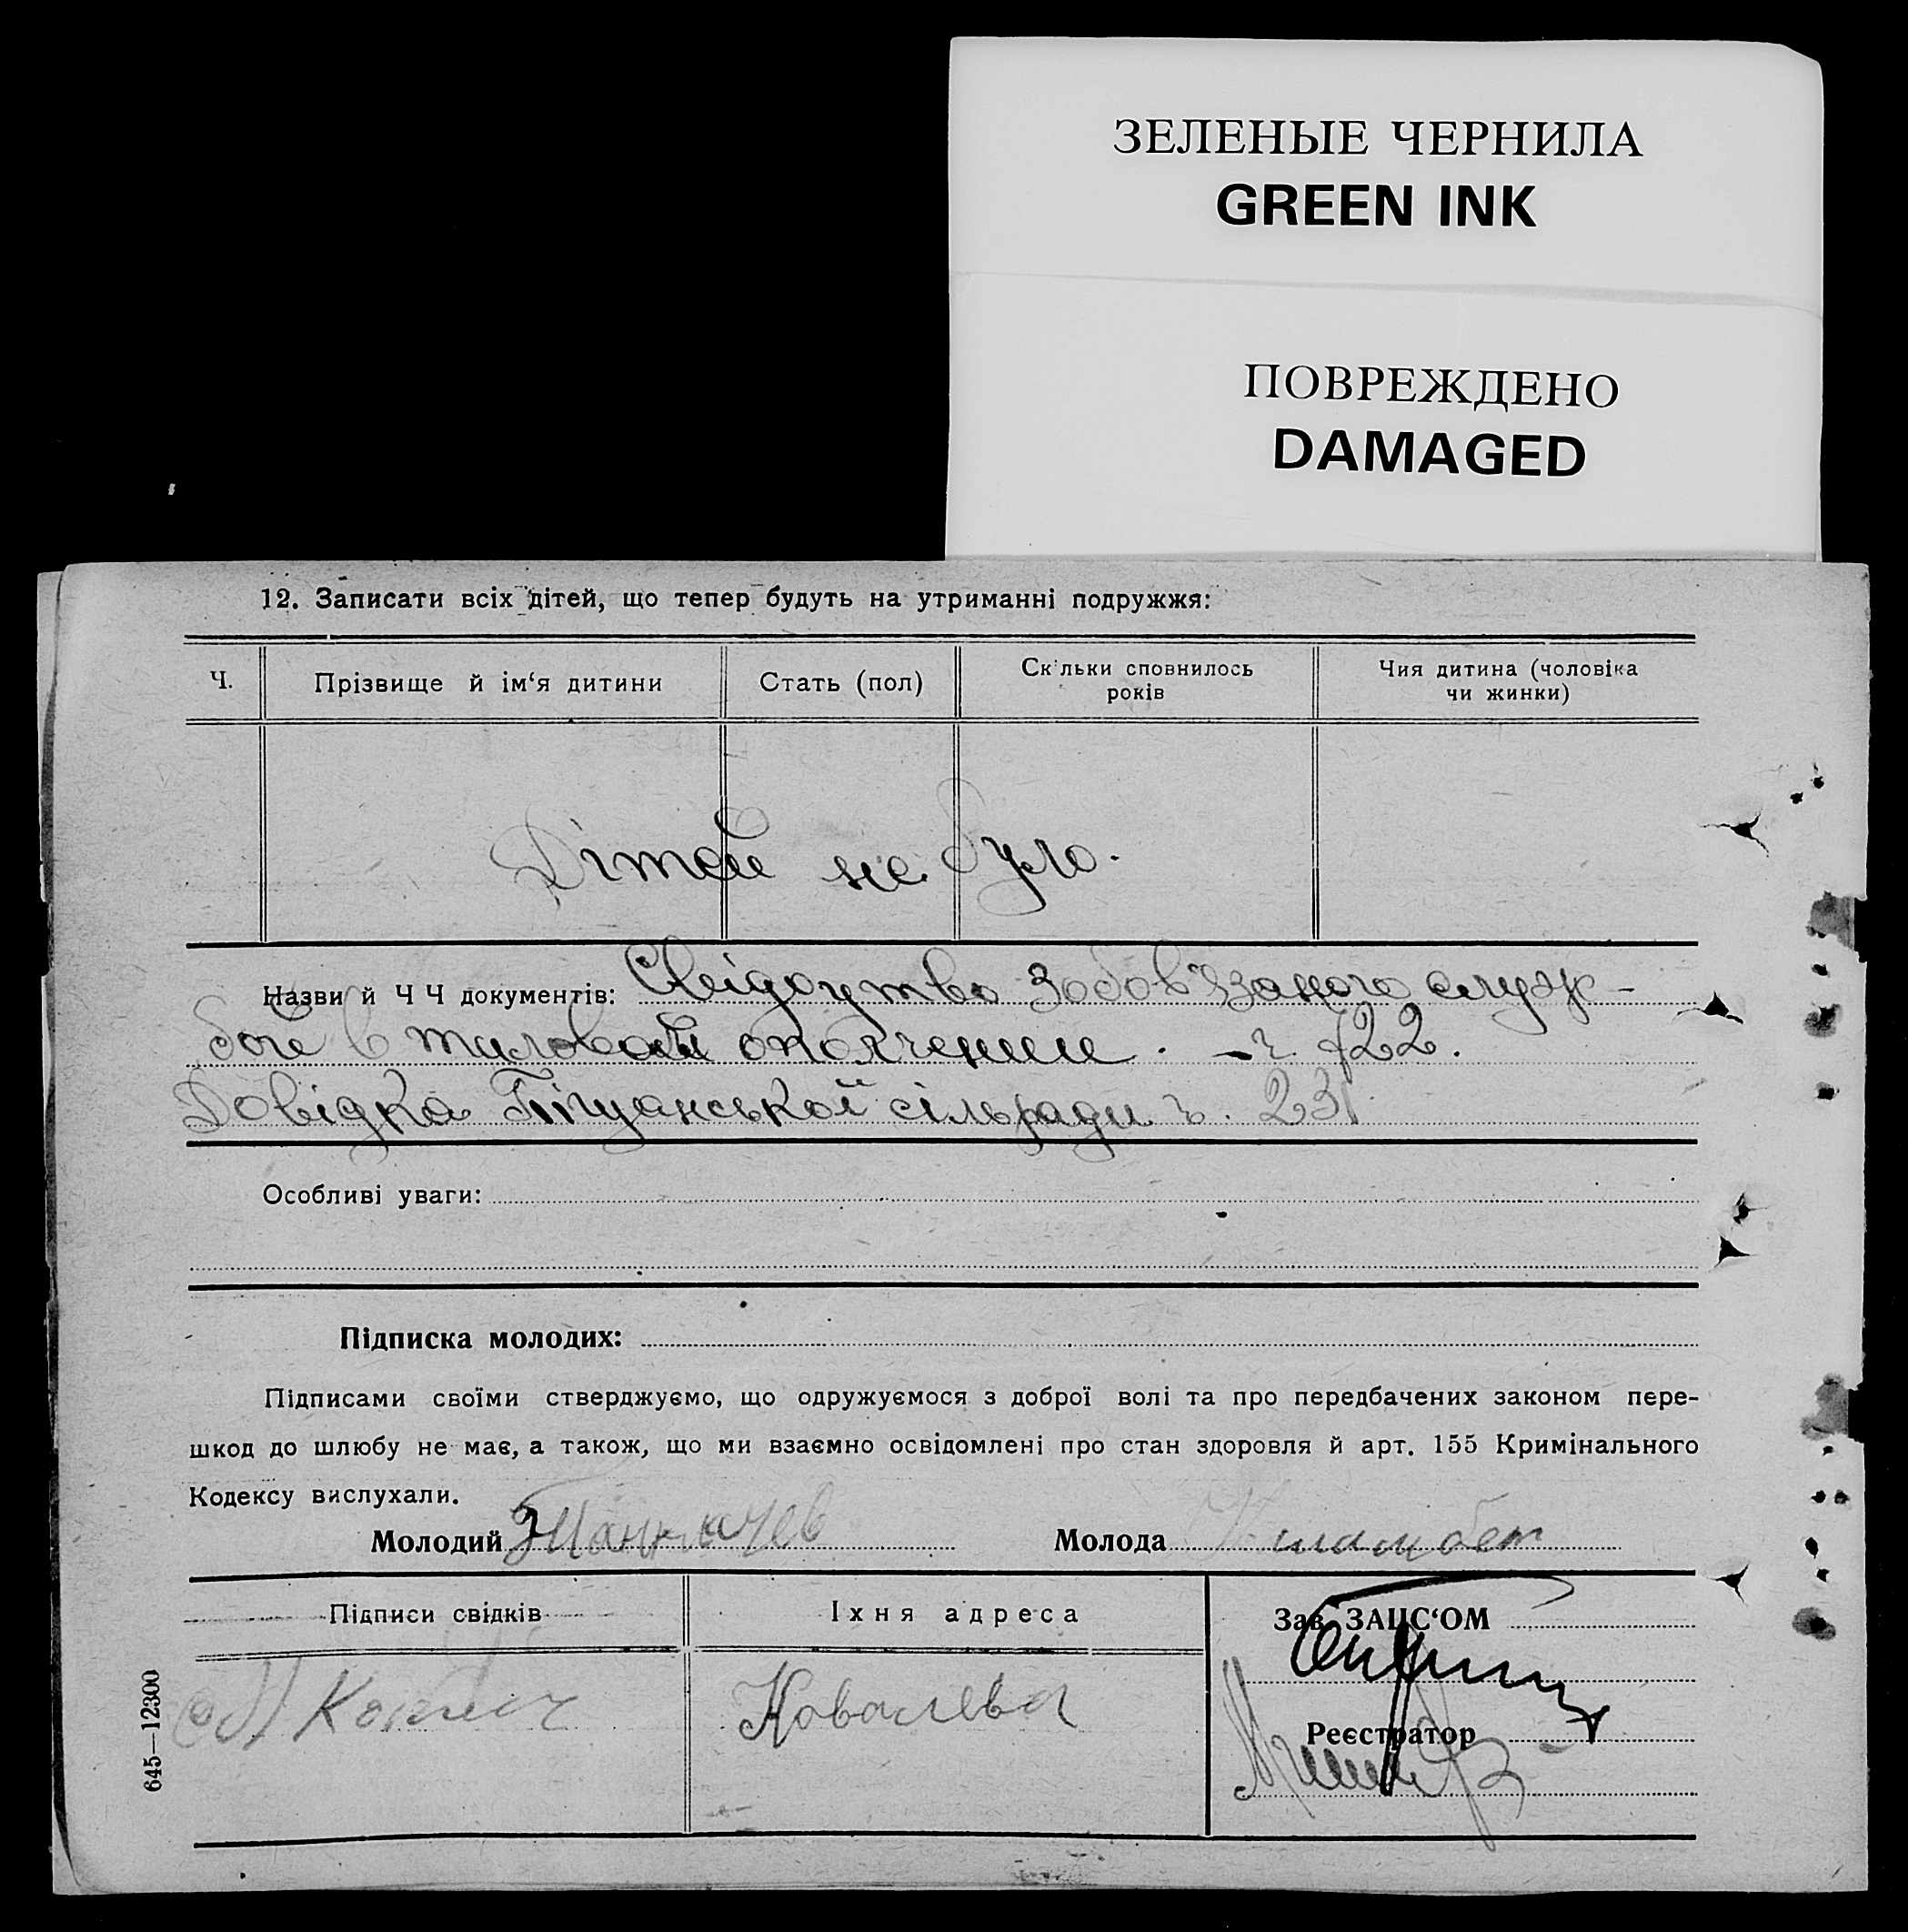 ЗЕЛЕНЫЕ ЧЕРНИЛА
GREEN INK
ПОВРЕЖДЕНО
DAMAGED
12. Записати всіх дітей, що тепер будуть на утриманні подружжя:
Ч.
Прізвище й ім‘я дитини
Стать (пол)
Скільки сповнилось
років
Чия дитина (чоловіка
чи жинки)
Дітей не було.
Назви й Ч Ч документів: Свідоцтво Зобов'язаного служ-
бой в тиловой ополчении. - ч. 722.
Довідка сільради ч. 231
Особливі уваги:
Підписка молодих:
Підписами своїми стверджуємо, що одружуємося з доброї волі та про передбачених законом пере-
шкод до шлюбу не має, а також, що ми взаємно освідомлені про стан здоровля й арт. 155 Кримінального
Кодексу вислухали.
Молодий
Молода
Підписи свідків
Їхня адреса
Зав. ЗАЦС‘ОМ
Ковалева
Реєстратор
645—12300